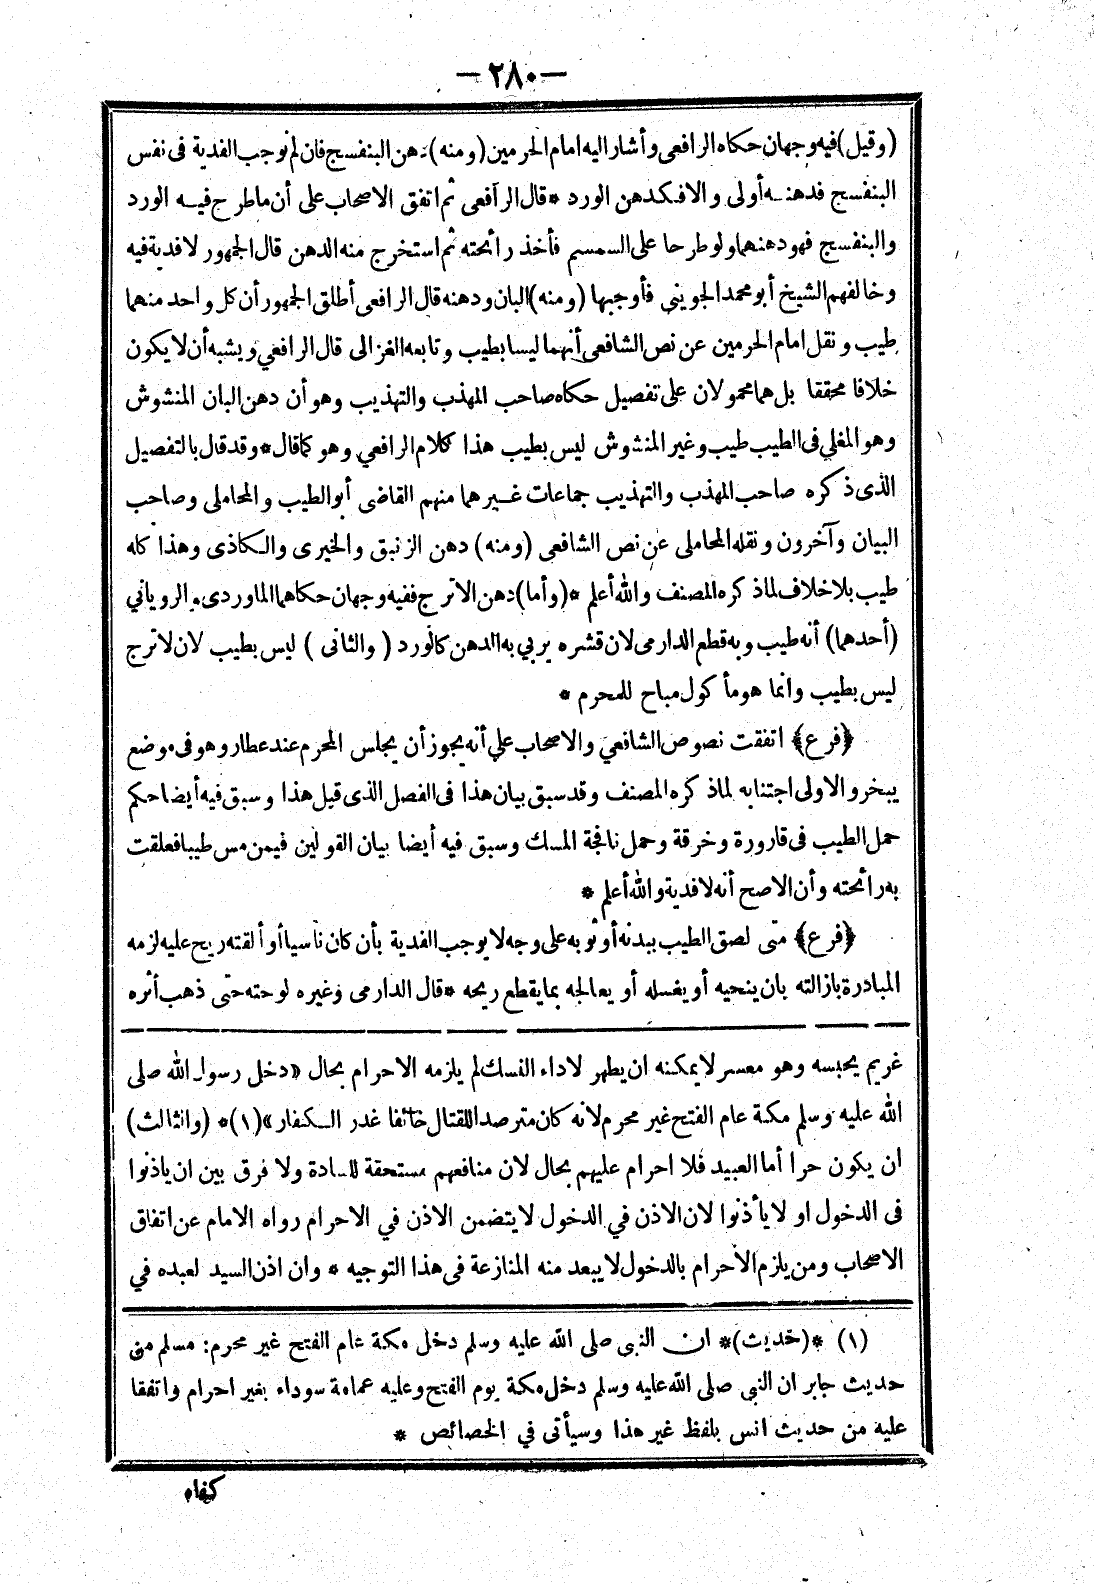 — ٢٨٠ —
(وقيل) فيه وجهان حكاه الرافعى وأشار اليه امام الحرمين (ومنه) دهن البنفسج فان لم نوجب الفدية فى نفس
البنفسج فدهنه أولى والا فكدهن الورد * قال الرافعى ثم اتفق الاصحاب على أن ماطرح فيه الورد
والبنفسج فهو دهنهما ولو طرحا على السمسم فأخذ رائحته ثم استخرج منه الدهن قال الجمهور لا فدية فيه
وخالفهم الشيخ أبو محمد الجوينى فأوجبها (ومنه) البان ودهنه قال الرافعى أطلق الجمهور أن كل واحد منهما
طيب ونقل امام الحرمين عن نص الشافعى أنهما ليسا بطيب وتابعه الغزالى قال الرافعي ويشبه أن لا يكون
خلافا محققا بل هما محمولان على تفصيل حكاه صاحب المهذب والتهذيب وهو أن دهن البان المنشوش
وهو المغلي فى الطيب طيب وغير المنشوش ليس بطيب هذا كلام الرافعي وهو كما قال * وقد قال بالتفصيل
الذى ذكره صاحب المهذب والتهذيب جماعات غيرهما منهم القاضى أبو الطيب والمحاملى وصاحب
البيان وآخرون ونقله المحاملى عن نص الشافعى (ومنه) دهن الزنبق والخيرى والكاذى وهذا كله
طيب بلا خلاف لما ذكره المصنف والله أعلم * (وأما) دهن الاترج ففيه وجهان حكاهما الماوردى والروياني
(أحدهما) أنه طيب وبه قطع الدارمى لان قشره يربي به الدهن كالورد (والثانى) ليس بطيب لان لاترج
ليس بطيب وانما هو مأكول مباح للمحرم *
﴿فرع﴾ اتفقت نصوص الشافعي والاصحاب علي أنه يجوز أن يجلس المحرم عند عطار وهو فى موضع
يبخر والاولى اجتنابه لما ذكره المصنف وقد سبق بيان هذا فى الفصل الذى قبل هذا وسبق فيه أيضا حكم
حمل الطيب فى قارورة وخرقة وحمل نافجة المسك وسبق فيه أيضا بيان القولين فيمن مس طيبا فعلقت
به رائحته وأن الاصح أنه لا فدية والله أعلم *
﴿فرع﴾ متى لصق الطيب ببدنه أو ثوبه على وجه لا يوجب الفدية بأن كان ناسيا أو ألقته ريح عليه لزمه
المبادرة بازالته بان ينحيه أو يغسله أو يعالجه بما يقطع ريحه * قال الدارمى وغيره لو حته حتى ذهب أثره
غريم يحبسه وهو معسر لا يمكنه ان يظهر لاداء النسك لم يلزمه الاحرام بحال «دخل رسول الله صلى
الله عليه وسلم مكة عام الفتح غير محرم لانه كان مترصدا للقتال خائفا غدر الكفار» (١) * (والثالث)
ان يكون حرا أما العبيد فلا احرام عليهم بحال لان منافعهم مستحقة للسادة ولا فرق بين ان ياذنوا
فى الدخول او لا يأذنوا لان الاذن في الدخول لا يتضمن الاذن في الاحرام رواه الامام عن اتفاق
الاصحاب ومن يلزم الاحرام بالدخول لا يبعد منه المنازعة فى هذا التوجيه * وان اذن السيد لعبده في
(١) * (حديث) * ان النبى صلى الله عليه وسلم دخل مكة عام الفتح غير محرم: مسلم من
حديث جابر ان النبى صلى الله عليه وسلم دخل مكة يوم الفتح وعليه عمامة سوداء بغير احرام واتفقا
عليه من حديث انس بلفظ غير هذا وسيأتى في الخصائص *
كفاه